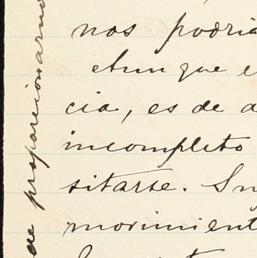 nos podria
Aunque e
cia, es de a
incompleto
sitarse. Su
movimient
de proporcionarno